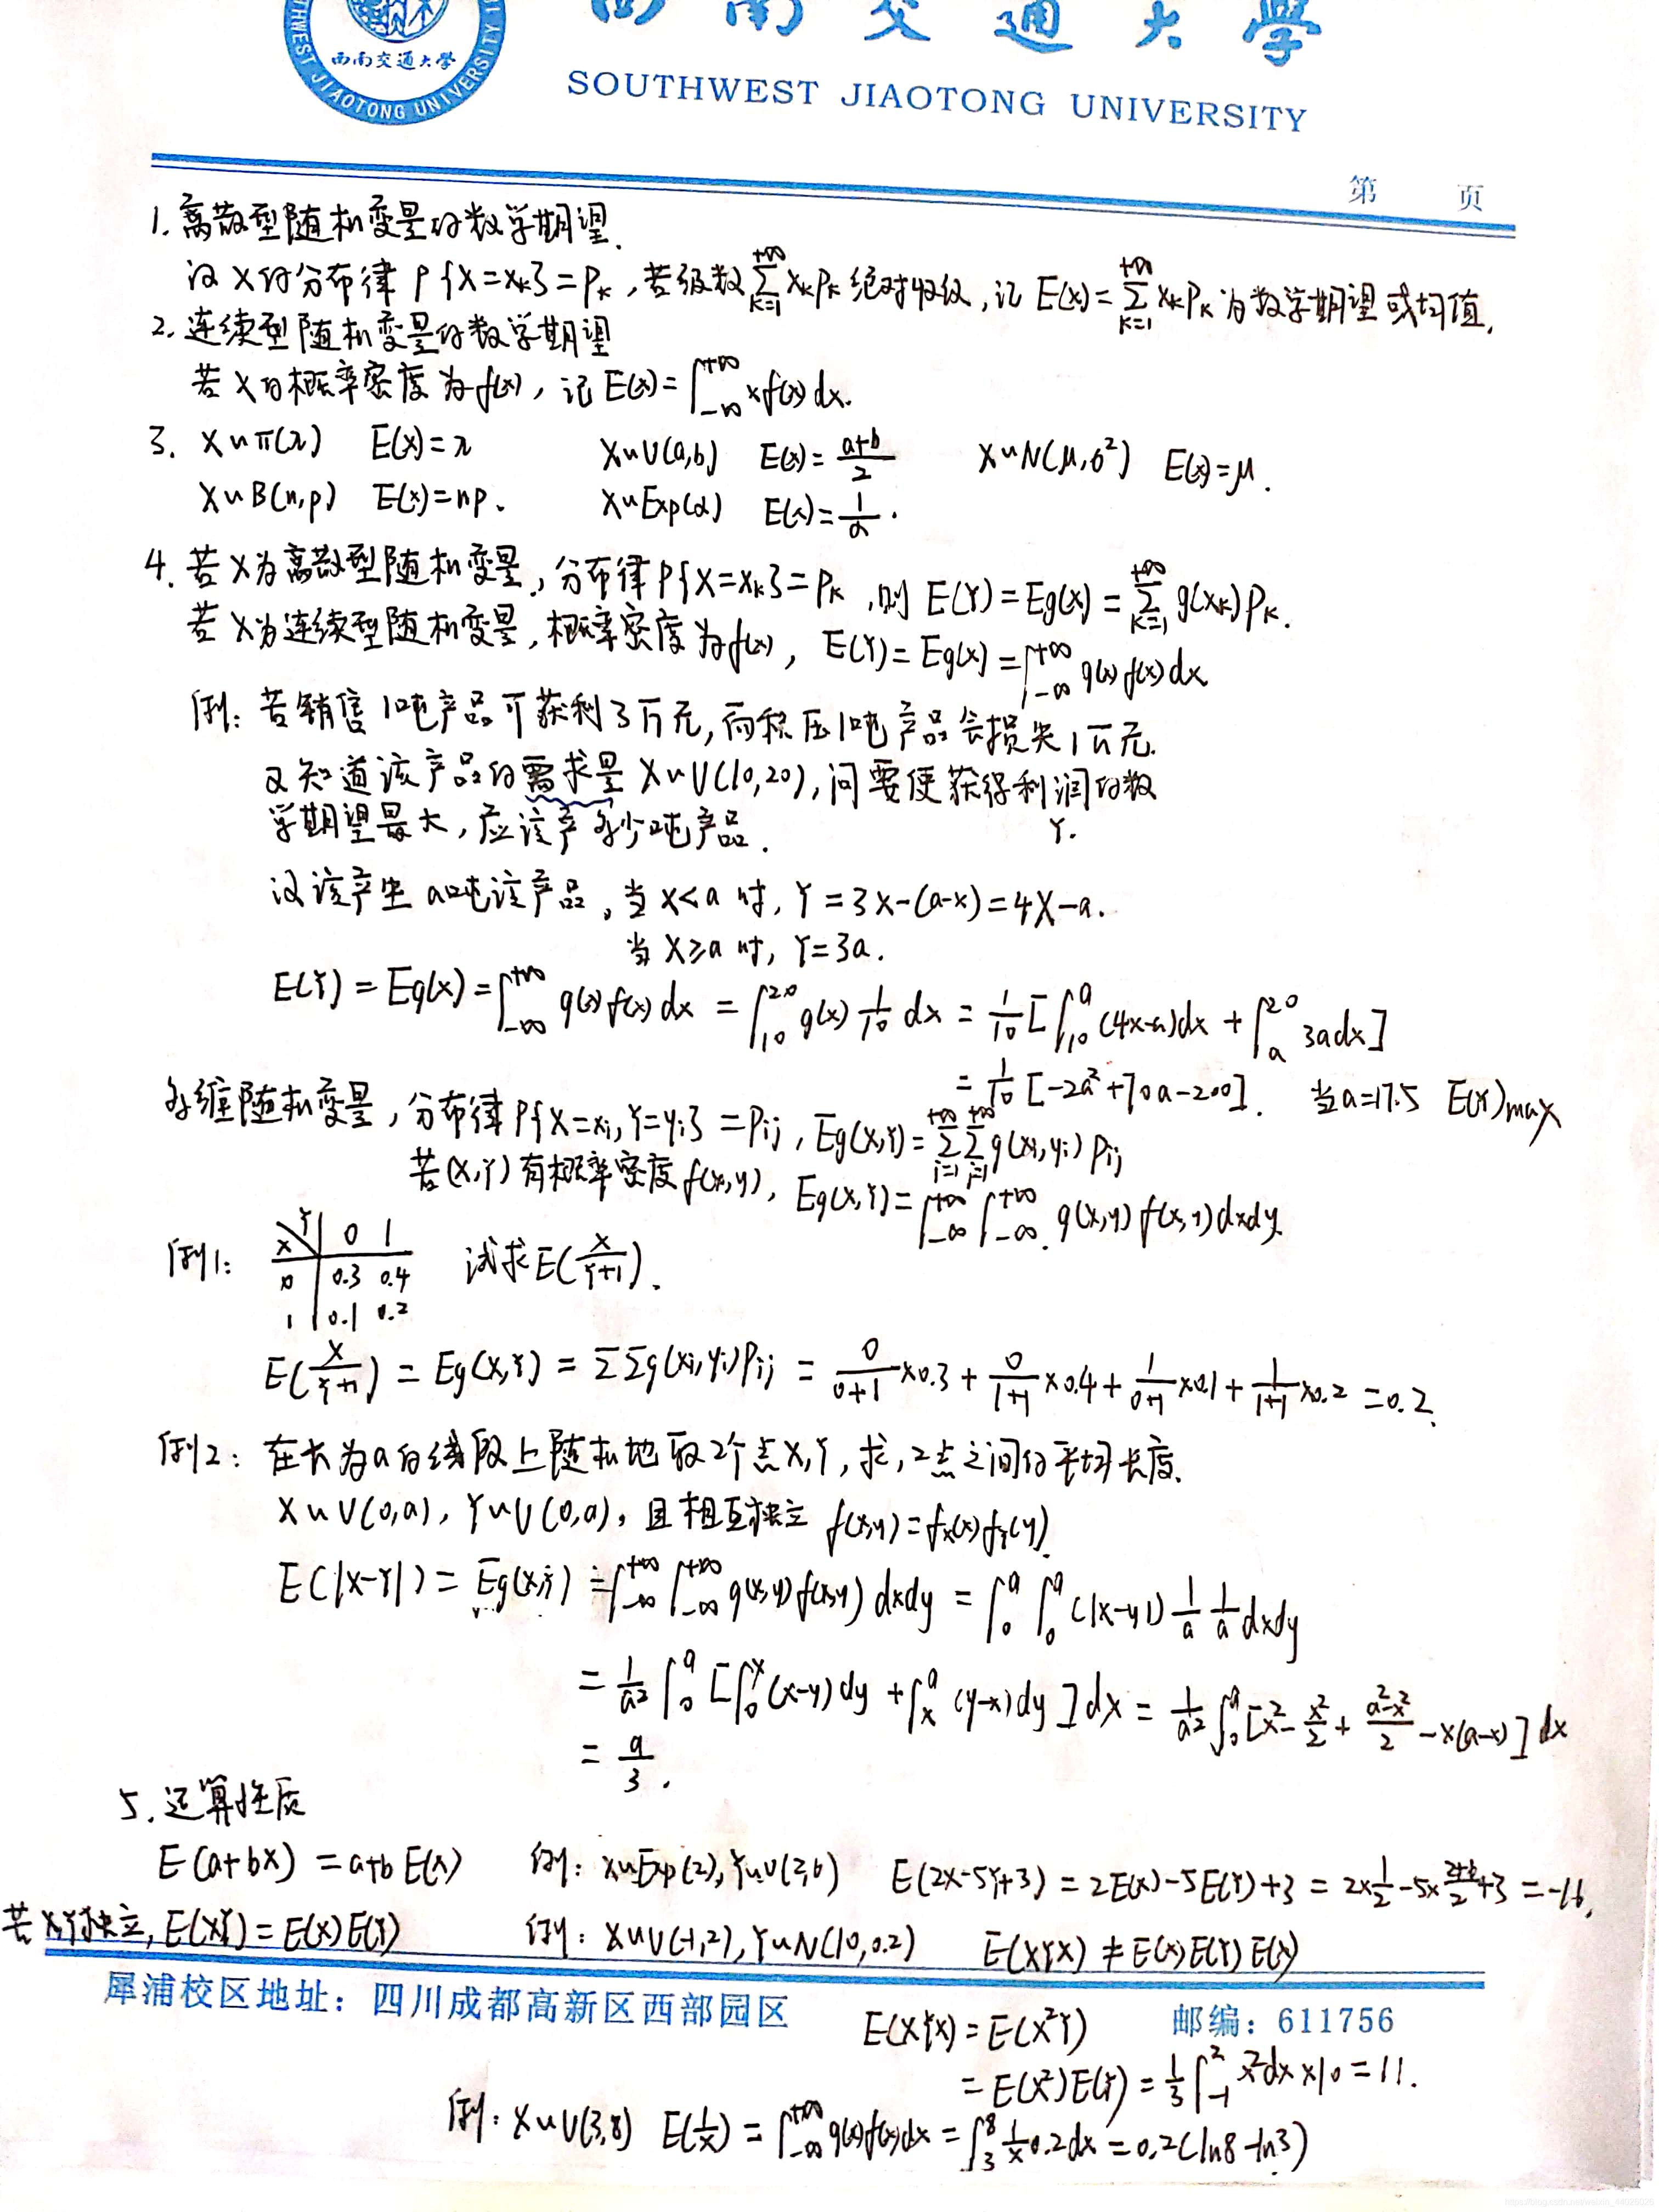 西南交通大学
SOUTHWEST JIAOTONG UNIVERSITY
西南交通大學
SOUTHWEST JIAOTONG UNIVERSITY
第 页
1. 离散型随机变量的数学期望.
设X的分布律 P{X=xₖ}=Pₖ, 若级数 ∑_{k=1}^{+∞} xₖPₖ 绝对收敛, 记 E(X)=∑_{k=1}^{+∞} xₖPₖ 为数学期望或均值.
2. 连续型随机变量的数学期望
若X的概率密度为f(x), 记 E(X)=∫_{-∞}^{+∞} xf(x)dx.
3. X~π(λ) E(X)=λ X~U(a,b) E(X)=(a+b)/2 X~N(μ,σ²) E(X)=μ.
X~B(n,p) E(X)=np. X~Exp(α) E(X)=1/α.
4. 若X为离散型随机变量, 分布律P{X=xₖ}=Pₖ, 则 E(Y)=Eg(X)=∑_{k=1}^{+∞} g(xₖ)Pₖ.
若X为连续型随机变量, 概率密度为f(x), E(Y)=Eg(X)=∫_{-∞}^{+∞} g(x)f(x)dx
例: 若销售1吨产品可获利3万元, 而积压1吨产品会损失1万元.
又知道该产品的需求量X~U(10,20), 问要使获得利润的数
学期望最大, 应该产多少吨产品.
Y.
设该产生a吨该产品, 当X<a时, Y=3X-(a-X)=4X-a.
当X≥a时, Y=3a.
E(Y)=Eg(X)=∫_{-∞}^{+∞} g(x)f(x)dx = ∫_{10}^{20} g(x) 1/10 dx = 1/10 [∫_{10}^{a} (4x-a)dx + ∫_{a}^{20} 3adx]
= 1/10 [-2a²+70a-200]. 当a=17.5 E(Y)max
多维随机变量, 分布律P{X=xi, Y=yi}=Pij, Eg(X,Y)=∑_{i=1}^{+∞}∑_{j=1}^{+∞} g(xi,yi)Pij
若(X,Y)有概率密度f(x,y), Eg(X,Y)=∫_{-∞}^{+∞}∫_{-∞}^{+∞} g(x,y)f(x,y)dxdy.
例1: X\Y 0 1 试求E(X/(Y+1)).
0 0.3 0.4
1 0.1 0.2
E(X/(Y+1)) = Eg(X,Y) = ∑∑g(xi,yi)Pij = 0/(0+1)×0.3 + 0/(1+1)×0.4 + 1/(0+1)×0.1 + 1/(1+1)×0.2 = 0.2.
例2: 在长为a的线段上随机地取2个点X,Y, 求, 2点之间的平均长度.
X~U(0,a), Y~U(0,a), 且相互独立 f(x,y)=fx(x)fY(y).
E(|X-Y|) = Eg(X,Y) = ∫_{-∞}^{+∞}∫_{-∞}^{+∞} g(x,y)f(x,y)dxdy = ∫_{0}^{a}∫_{0}^{a} (|x-y|) 1/a 1/a dxdy
= 1/a² ∫_{0}^{a} [∫_{0}^{x} (x-y)dy + ∫_{x}^{a} (y-x)dy]dx = 1/a² ∫_{0}^{a} [x² - x²/2 + (a²-x²)/2 - x(a-x)]dx
= a/3.
5. 运算性质
E(a+bX)=a+bE(X) 例: X~Exp(2), Y~U(2,6) E(2X-5Y+3) = 2E(X)-5E(Y)+3 = 2×1/2-5×(2+6)/2+3 = -16.
若X,Y独立, E(XY)=E(X)E(Y) 例: X~U(-1,2), Y~N(10,0.2) E(XYX) ≠ E(X)E(Y)E(X)
犀浦校区地址: 四川成都高新区西部园区 邮编: 611756
E(XYX)=E(X²Y)
= E(X²)E(Y) = 1/3 ∫_{-1}^{2} x²dx×10 = 11.
例: X~U(3,8) E(1/X) = ∫_{-∞}^{+∞} g(x)f(x)dx = ∫_{3}^{8} 1/x 0.2dx = 0.2(ln8-ln3)